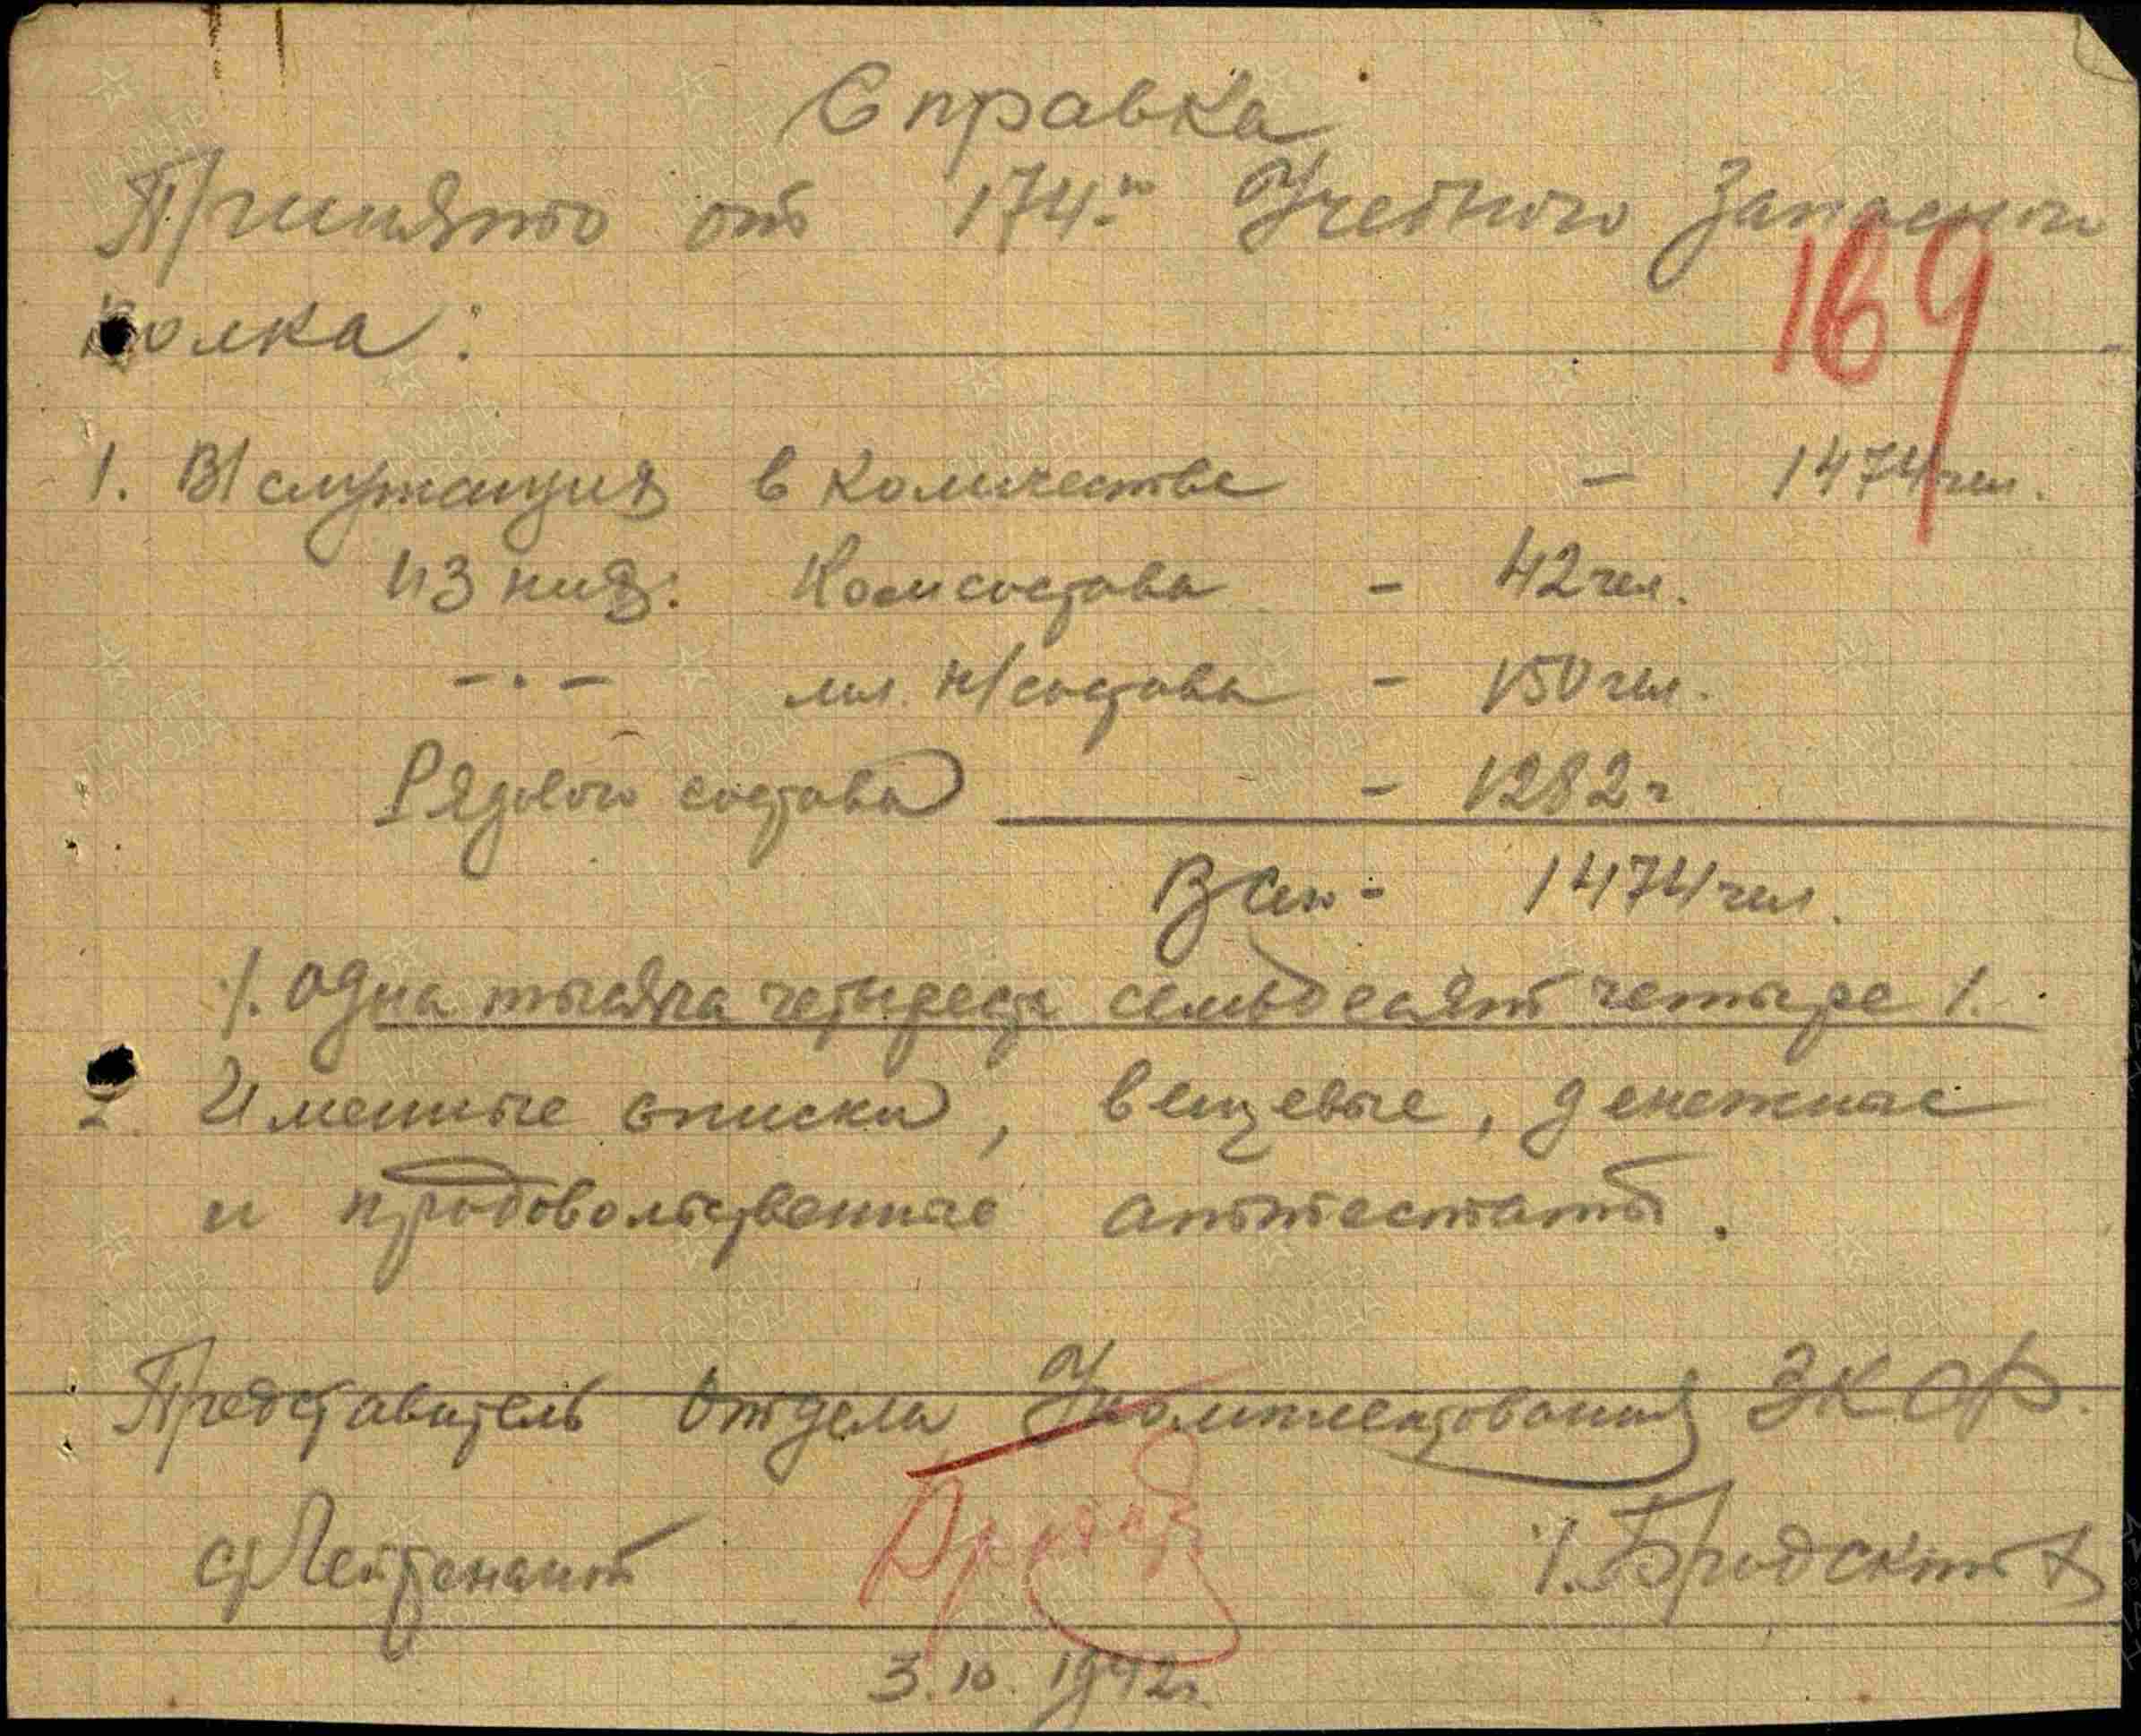 Справка
Принято от 174-го Учебного Запасного
полка:
169
1. В/служащих в количестве - 1474 чел.
из них: Комсостава - 42 чел.
-·- мл. н/состава - 150 чел.
Рядового состава - 1282 ч
Всего - 1474 чел.
/. одна тысяча четыреста семьдесят четыре /.
2. Именные списки, вещевые, денежные
и продовольственные аттестаты.
Представитель Отдела Укомплектования ЗКФ.
ср Лейтенант /. Бродский /
3.10.1942г.
ПАМЯТЬ НАРОДА